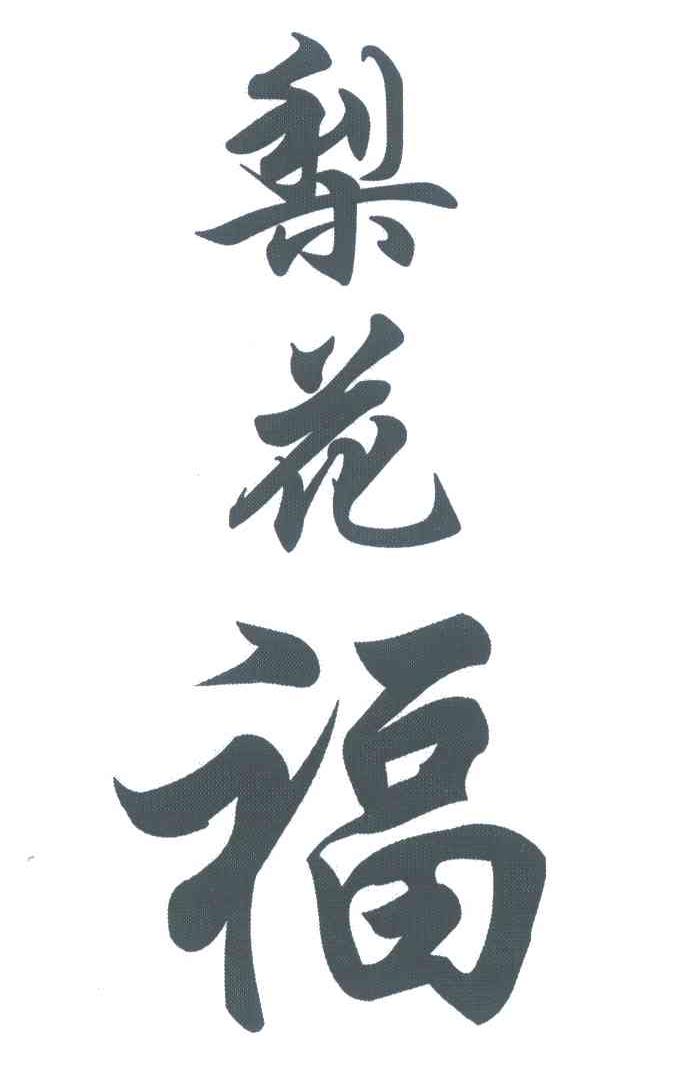 梨花福